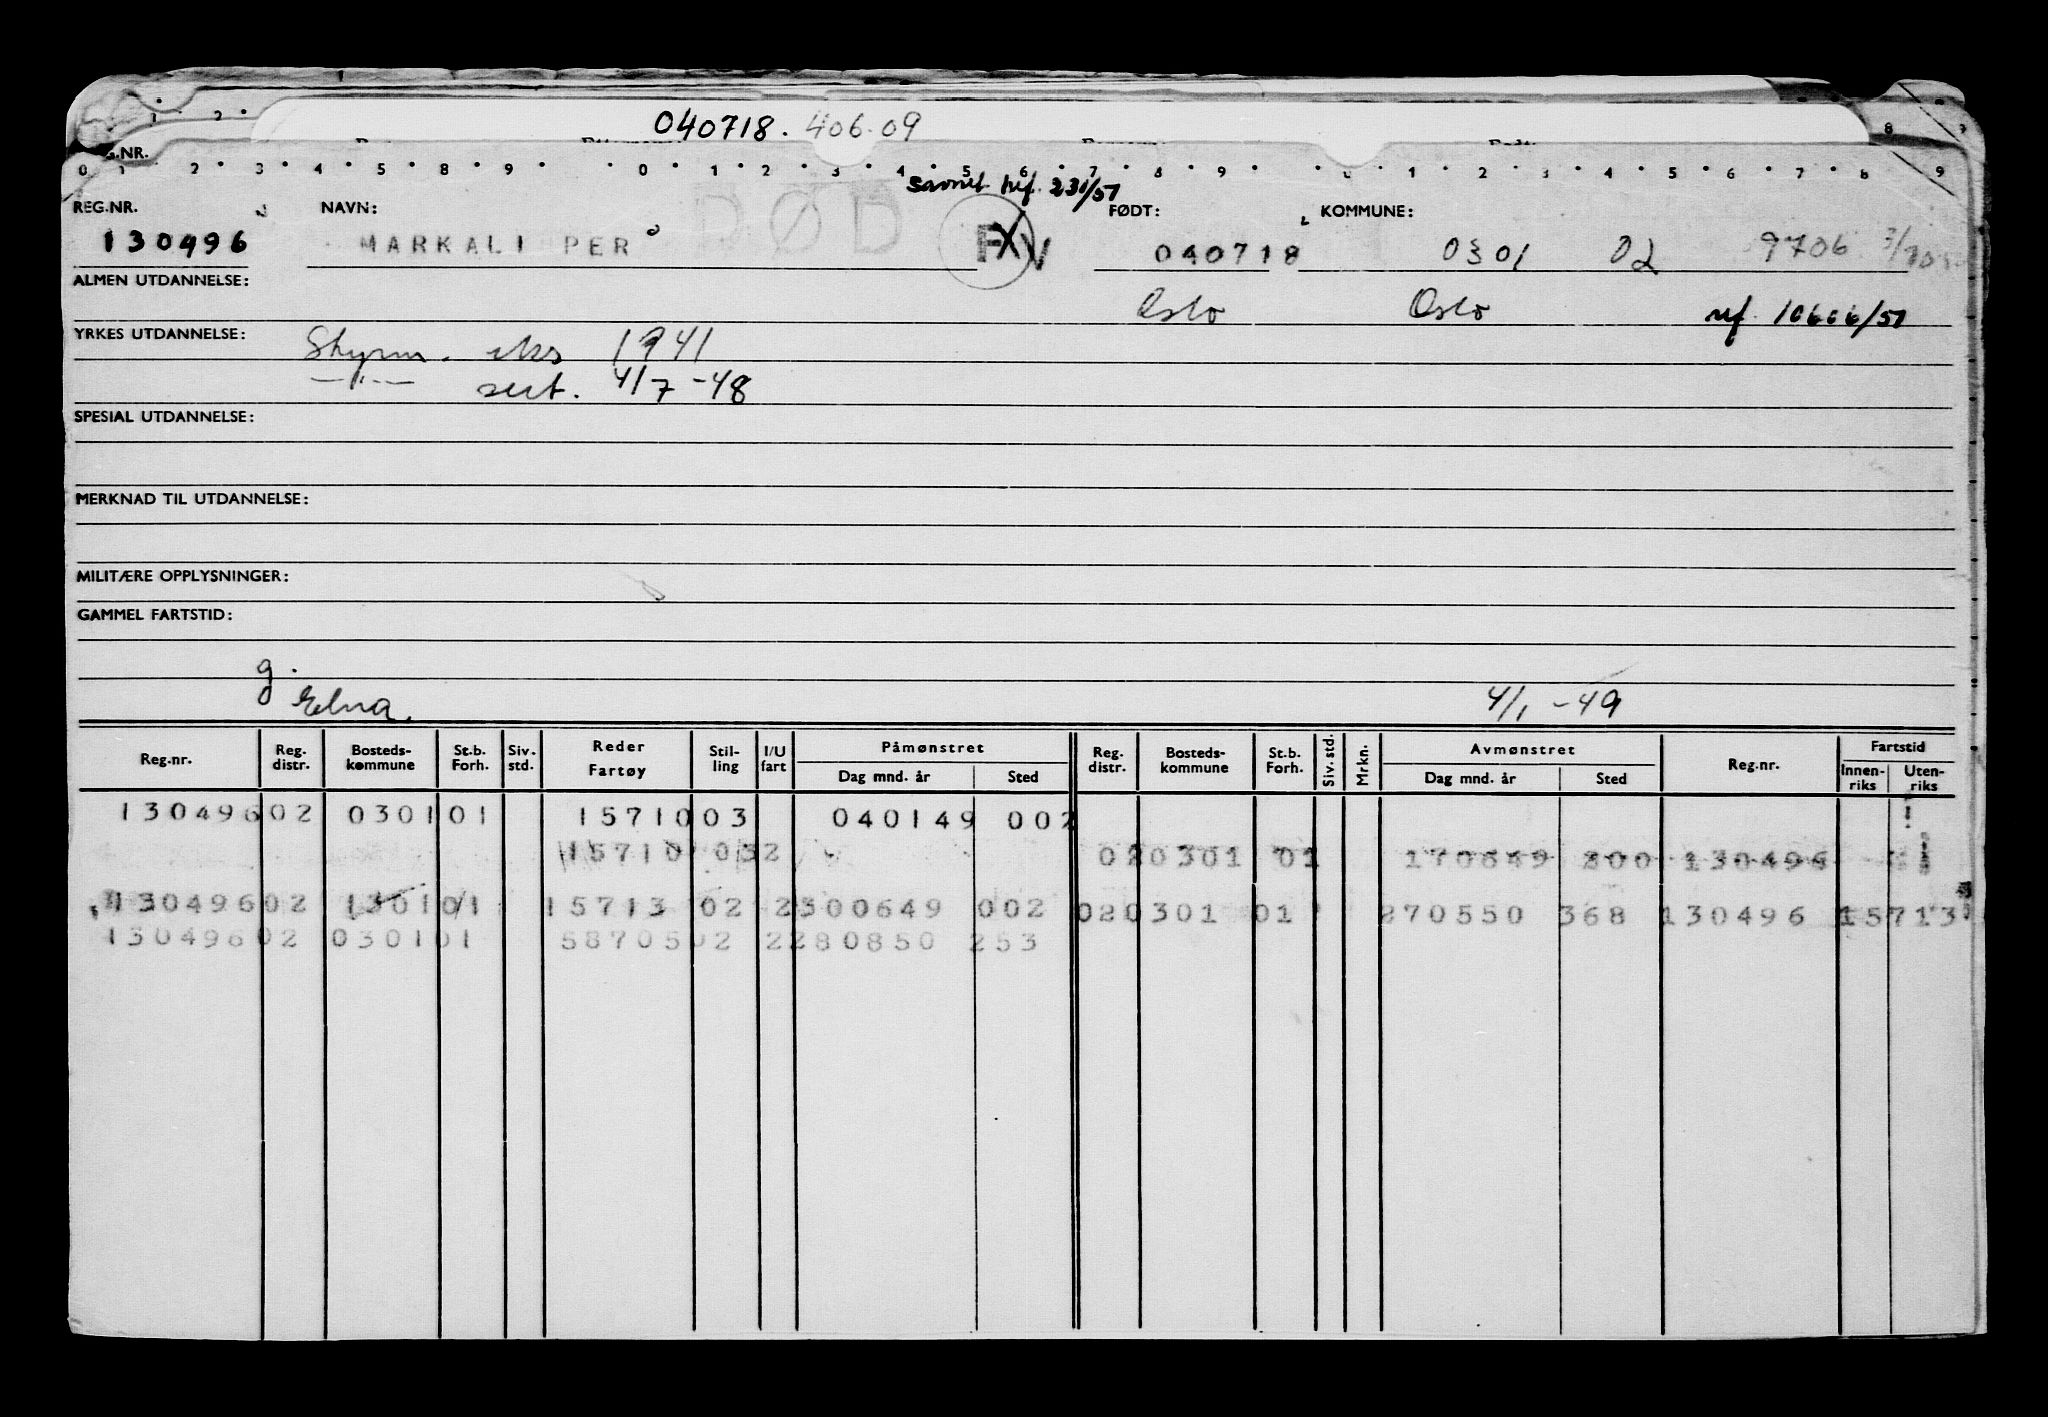 040718. 406.09
0 1 2 3 4 5 8 9 0 1 2 3 4 5 6 7 8 9 0 1 2 3 4 5 6 7 8 9
Savnet ref. 231/51
REG.NR. NAVN: FØDT: KOMMUNE:
130496 MARKALI PER DØD 040718 0301 02 9706
ALMEN UTDANNELSE:
Oslo Oslo ref. 10606/51
YRKES UTDANNELSE: Styrm. eks 1941
—"— sert. 4/7-48
SPESIAL UTDANNELSE:
MERKNAD TIL UTDANNELSE:
MILITÆRE OPPLYSNINGER:
GAMMEL FARTSTID:
g.
Elna. 4/1-49
Reg.nr. Reg. distr. Bosteds-kommune St.b. Forh. Siv. std. Reder Fartøy Stil-ling I/U fart Påmønstret Dag mnd. år Sted Reg. distr. Bosteds-kommune St.b. Forh. Siv. std. Mrkn. Avmønstret Dag mnd. år Sted Reg.nr. Fartstid Innen-riks Uten-riks
130496 02 0301 01 15710 03 040149 002
15710 032 020301 01 170649 200 130496
130496 02 130101 15713 02 2300649 002 020301 01 270550 368 130496 15713
130496 02 030101 58705 02 2280850 253